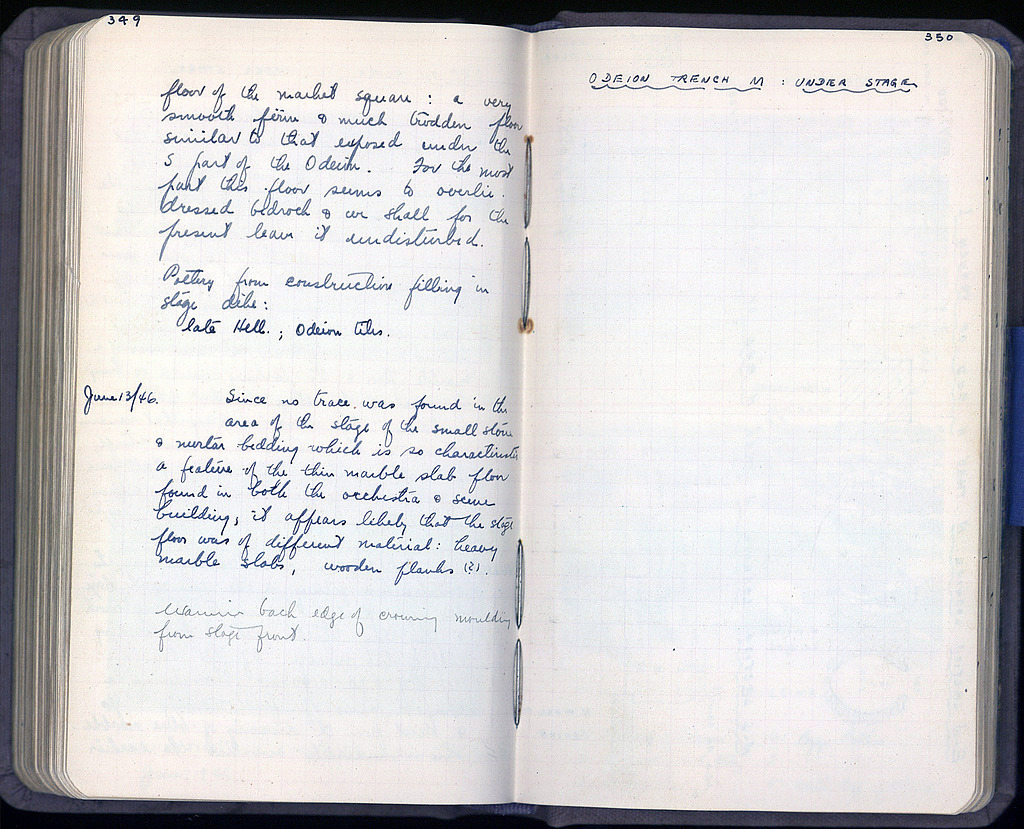 349
floor of the market square : a very
smooth firm & much trodden floor
similar to that exposed under the
S part of the Odeion. For the most
part this floor seems to overlie
dressed bedrock & we shall for the
present leave it undisturbed.
Pottery from construction filling in
stage
late Hell. ; Odeion tiles.
June 13/46.
Since no trace was found in the
area of the stage of the small stone
& mortar bedding which is so characteristic
a feature of the thin marble slab floor
found in both the orchestra & scene
building, it appears likely that the stage
floor was of different material: heavy
marble slabs, wooden planks (?).
Examine back edge of crowning moulding
from stage front.
350
ODEION TRENCH M : UNDER STAGE